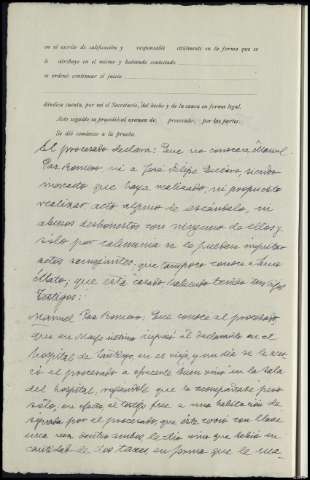 en el escrito de calificación y responsable civilmente en la forma que se
le atribuye en el mismo y habiendo contestado
se ordenó continuar el juicio
dándose cuenta, por mí el Secretario, del hecho y de la causa en forma legal.
Acto seguido se procedió al examen de procesados por las partes.
Se dió comienzo a la prueba.
El procesado declara: Que no conoce a Manuel
Paz Romero ni a José Felipe siendo
incierto que haya realizado, ni propuesto
realizar acto alguno de escándalo, ni
abusos deshonestos con ninguno de ellos y
sólo por calumnia se le pueden imputar
actos semejantes; que tampoco conoce a
que está casado habiendo tenido hijos
Testigos:
Manuel Paz Romero: Que conoce al procesado,
que en Mayo último ingresó el declarante en el
hospital de Santiago, en el viejo, y un día se le acer-
có el procesado a ofrecerle buen vino en la sala
del hospital, que le acompañase pero
sólo, en efecto el testigo fue a una habitación de-
signada por el procesado, que éste cerró con llave
una vez dentro ambos, le dió vino que bebió en
cantidad de dos tazas en forma que le ma-